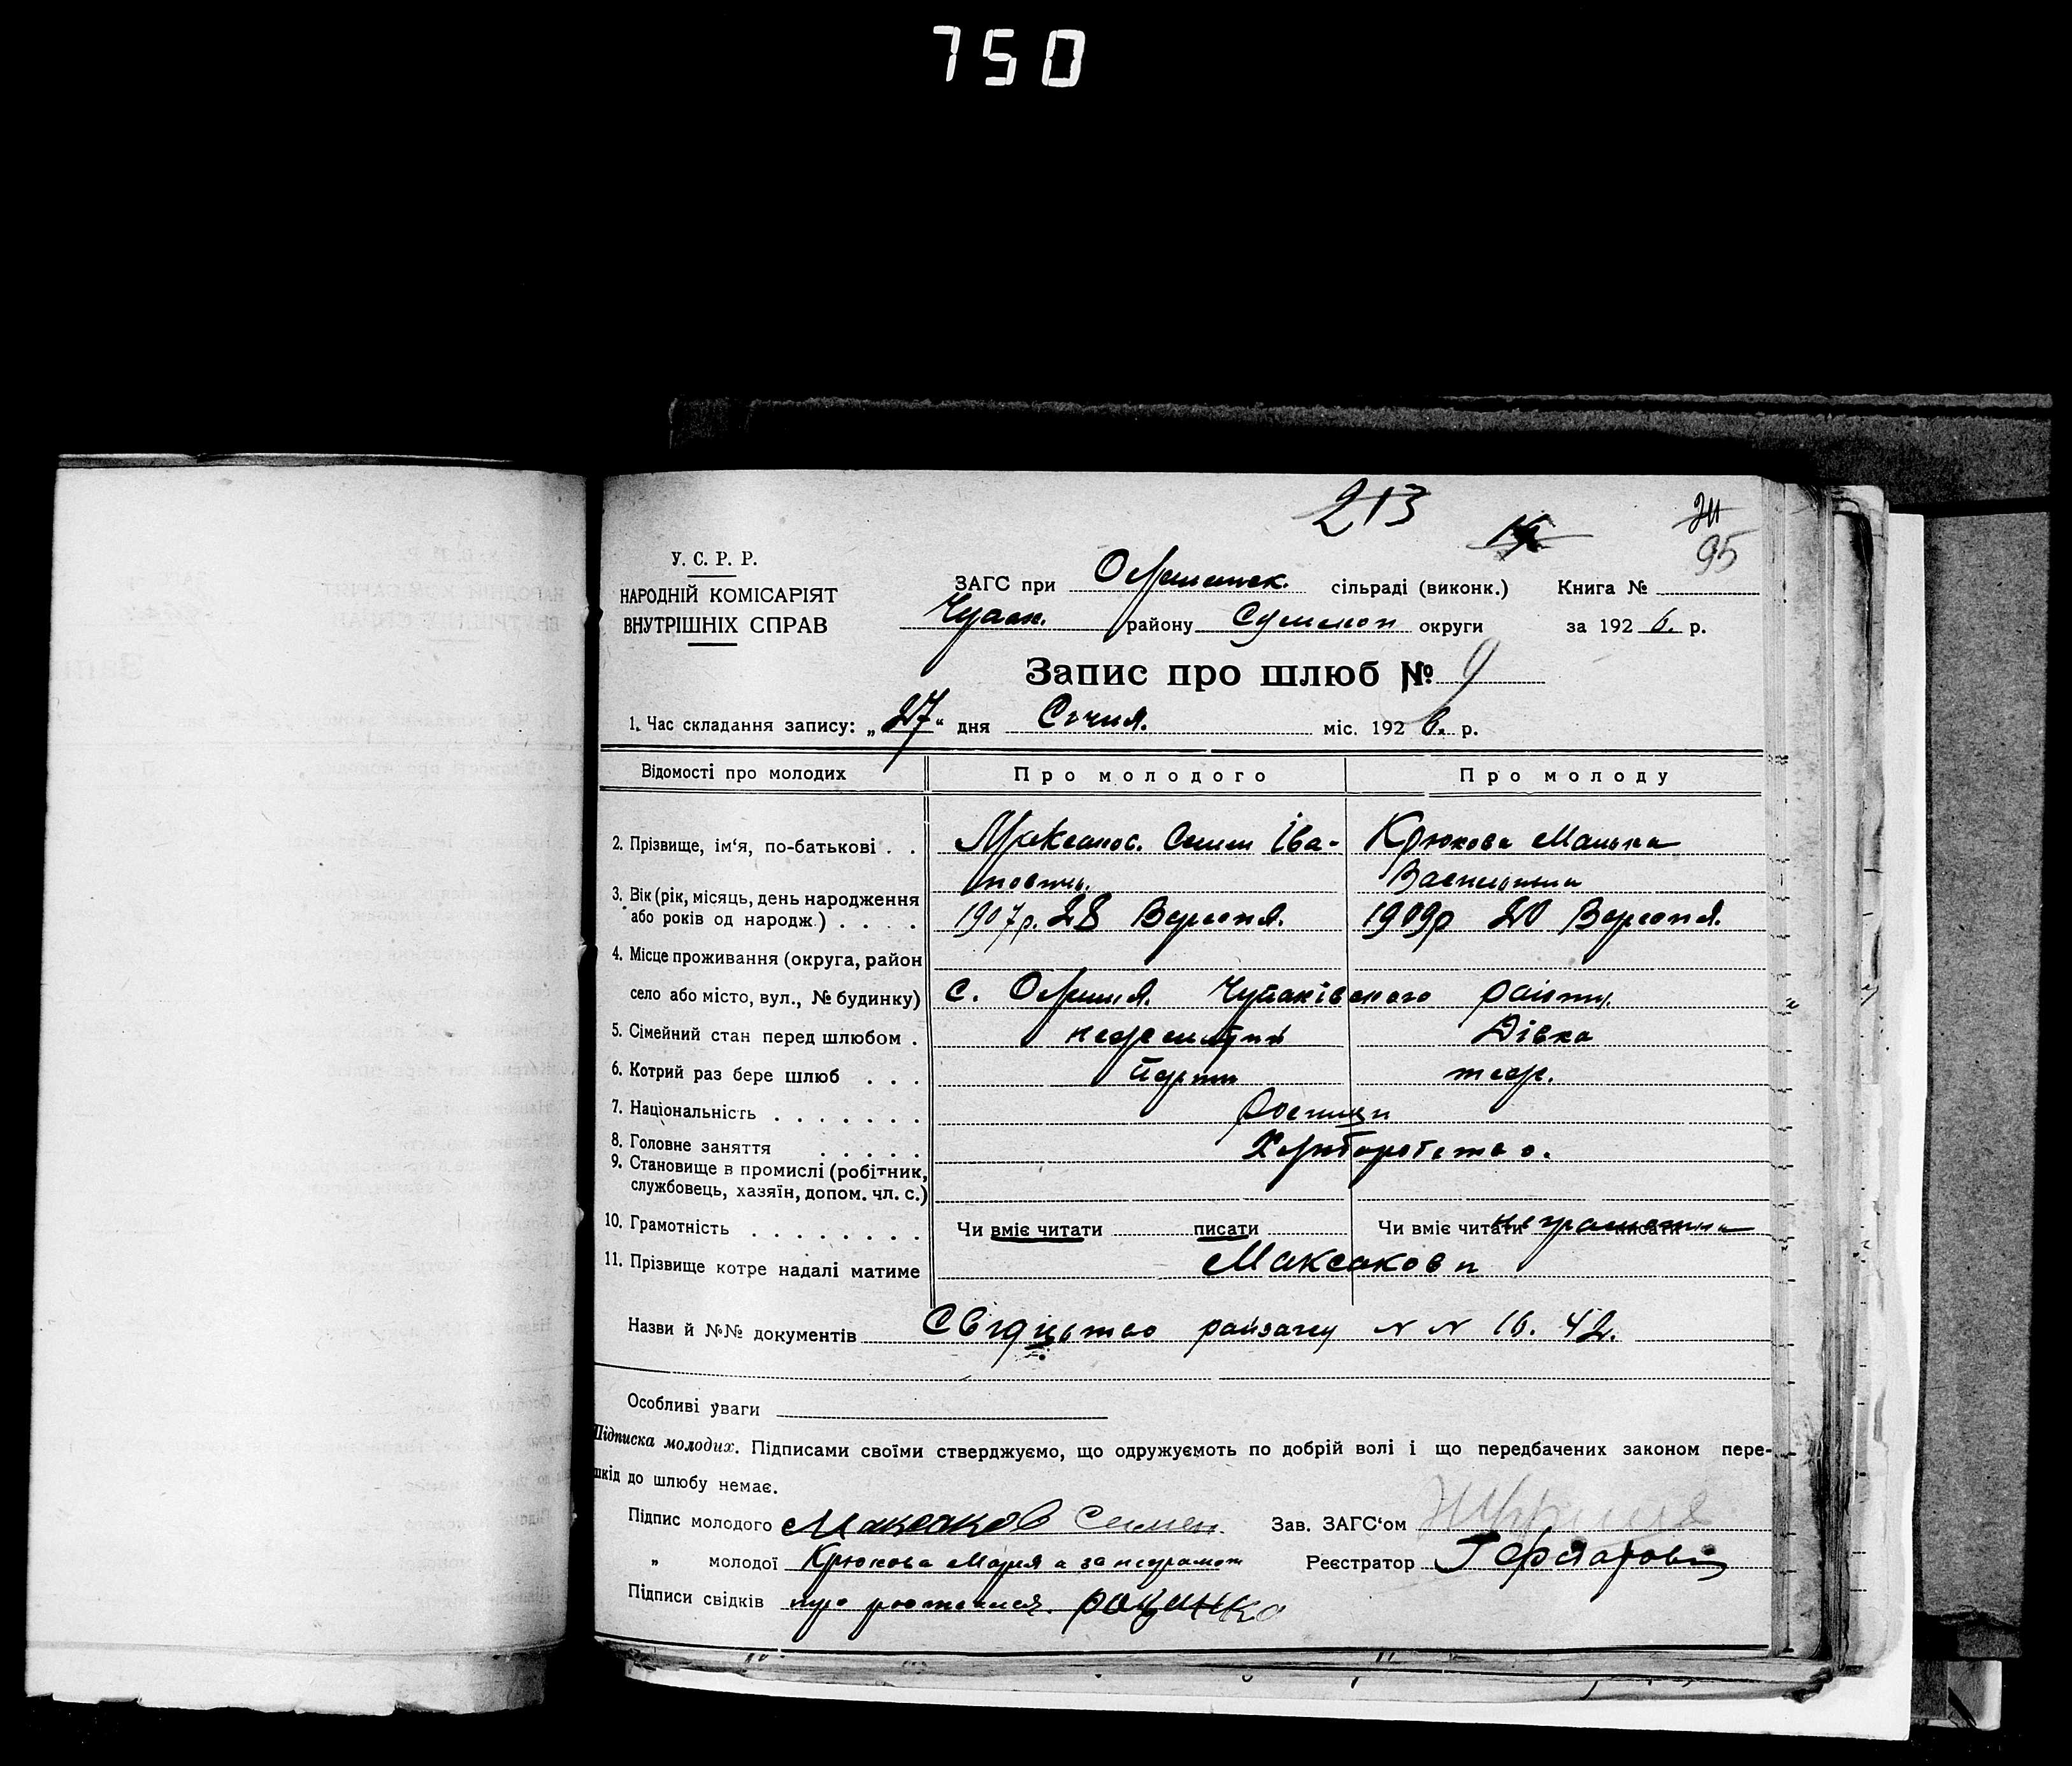 750
213
95
У. С. Р. Р.
НАРОДНІЙ КОМІСАРІЯТ
ВНУТРІШНІХ СПРАВ
ЗАГС при сільраді (виконк.) Книга №
району округи за 192 6. р.
Запис про шлюб № 9
1. Час складання запису: „27“ дня Січня. міс. 192 6. р.
Відомості про молодих Про молодого Про молоду
2. Прізвище, ім'я, по-батькові . . Максаков. Семен Іва- Крюкова
новичь.
3. Вік (рік, місяць, день народження
або років од народж.) . . . . 1907р. 28 Вересня. 1909р 20 Вересня.
4. Місце проживання (округа, район
село або місто, вул., № будинку) с. Чупаківского району.
5. Сімейний стан перед шлюбом . нежен Дівка
6. Котрий раз бере шлюб . . . теж.
7. Національність . . . . . . .
8. Головне заняття . . . . . Хліборобство.
9. Становище в промислі (робітник,
службовець, хазяїн, допом. чл. с.)
10. Грамотність . . . . . . . . Чи вміє читати писати Чи вміє читати писати неграмотна
11. Прізвище котре надалі матиме Максакови
Назви й №№ документів Свідцьтво райзагсу N N 16. 42.
Особливі уваги
Підписка молодих. Підписами своїми стверджуємо, що одружуємоть по добрій волі і що передбачених законом пере-
шкід до шлюбу немає.
Підпис молодого Максаков Семен Зав. ЗАГС‘ом
„ молодої Крюкова Мария а за неграмот Реєстратор
Підписи свідків